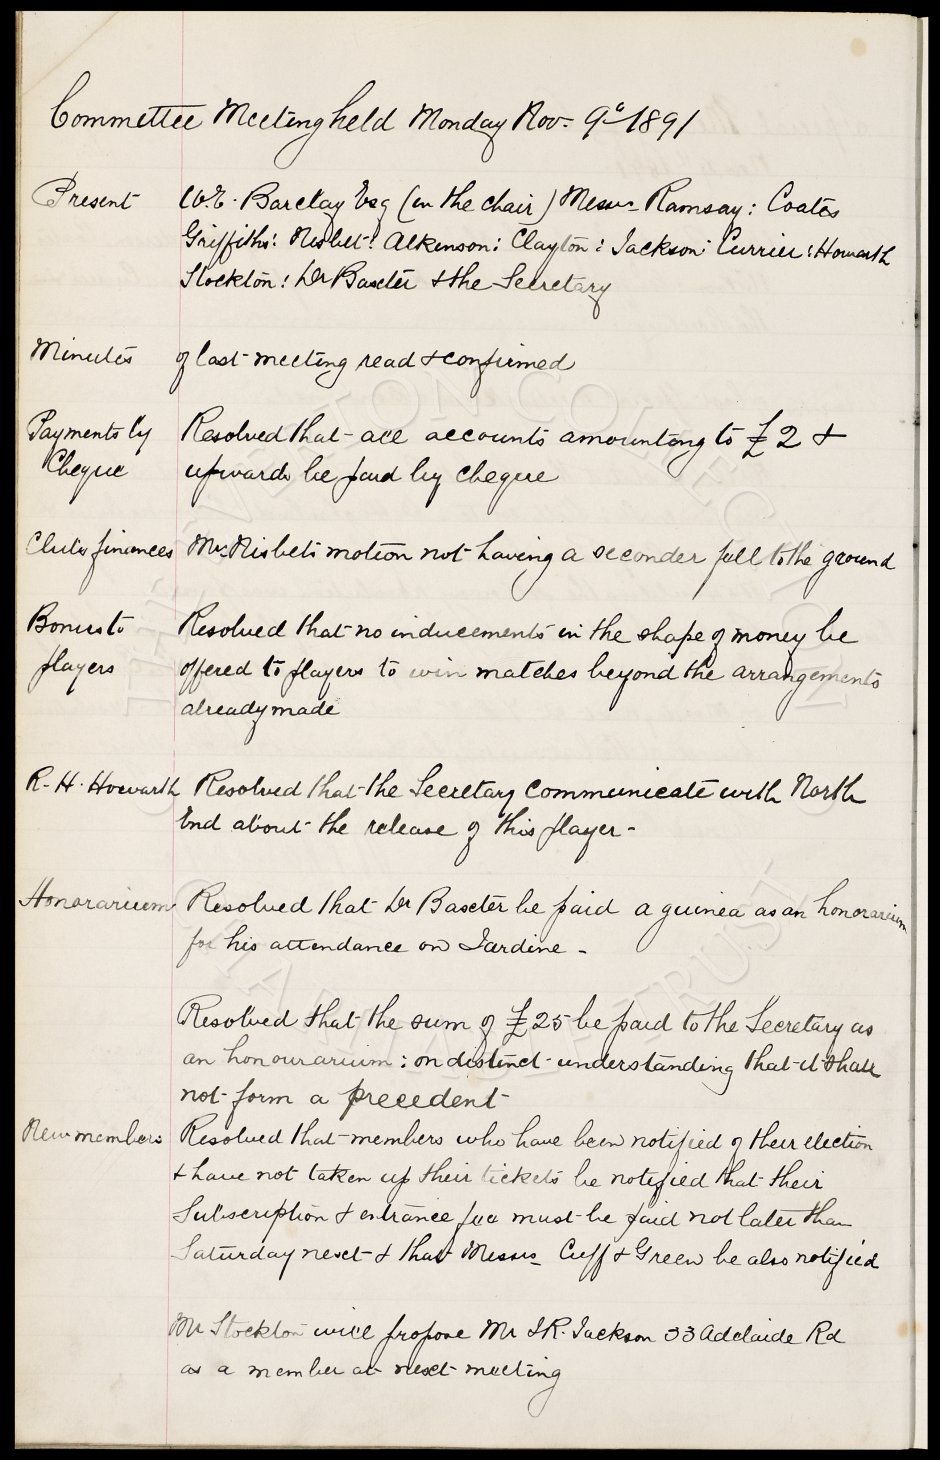 Committee Meeting held Monday Nov. 9th 1891
Present W.E. Barclay Esq (in the chair) Messrs Ramsay: Coates
Griffiths: Nisbet: Atkinson: Clayton: Jackson: Currier: Howarth
Stockton: Dr Baxter & the Secretary
Minutes of last meeting read & confirmed
Payments by Resolved that all accounts amounting to £2 &
Cheque upwards be paid by cheque
Clubs finances Mr Nisbets motion not having a seconder fell to the ground
Bonus to Resolved that no inducements in the shape of money be
players offered to players to win matches beyond the arrangements
already made
R. H. Howarth Resolved that the Secretary communicate with North
End about the release of this player -
Honorarium Resolved that Dr Baxter be paid a guinea as an honorarium
for his attendance on Jardine -
Resolved that the sum of £25 be paid to the Secretary as
an honourarium: on distinct understanding that it shall
not form a precedent
New members Resolved that members who have been notified of their election
& have not taken up their tickets be notified that their
Subscription & entrance fee must be paid not later than
Saturday next & that Messrs Cuff & Green be also notified
Mr Stockton will propose Mr J.R. Jackson 33 Adelaide Rd
as a member at next meeting
THE EVERTON COLLECTION
CHARITABLE TRUST